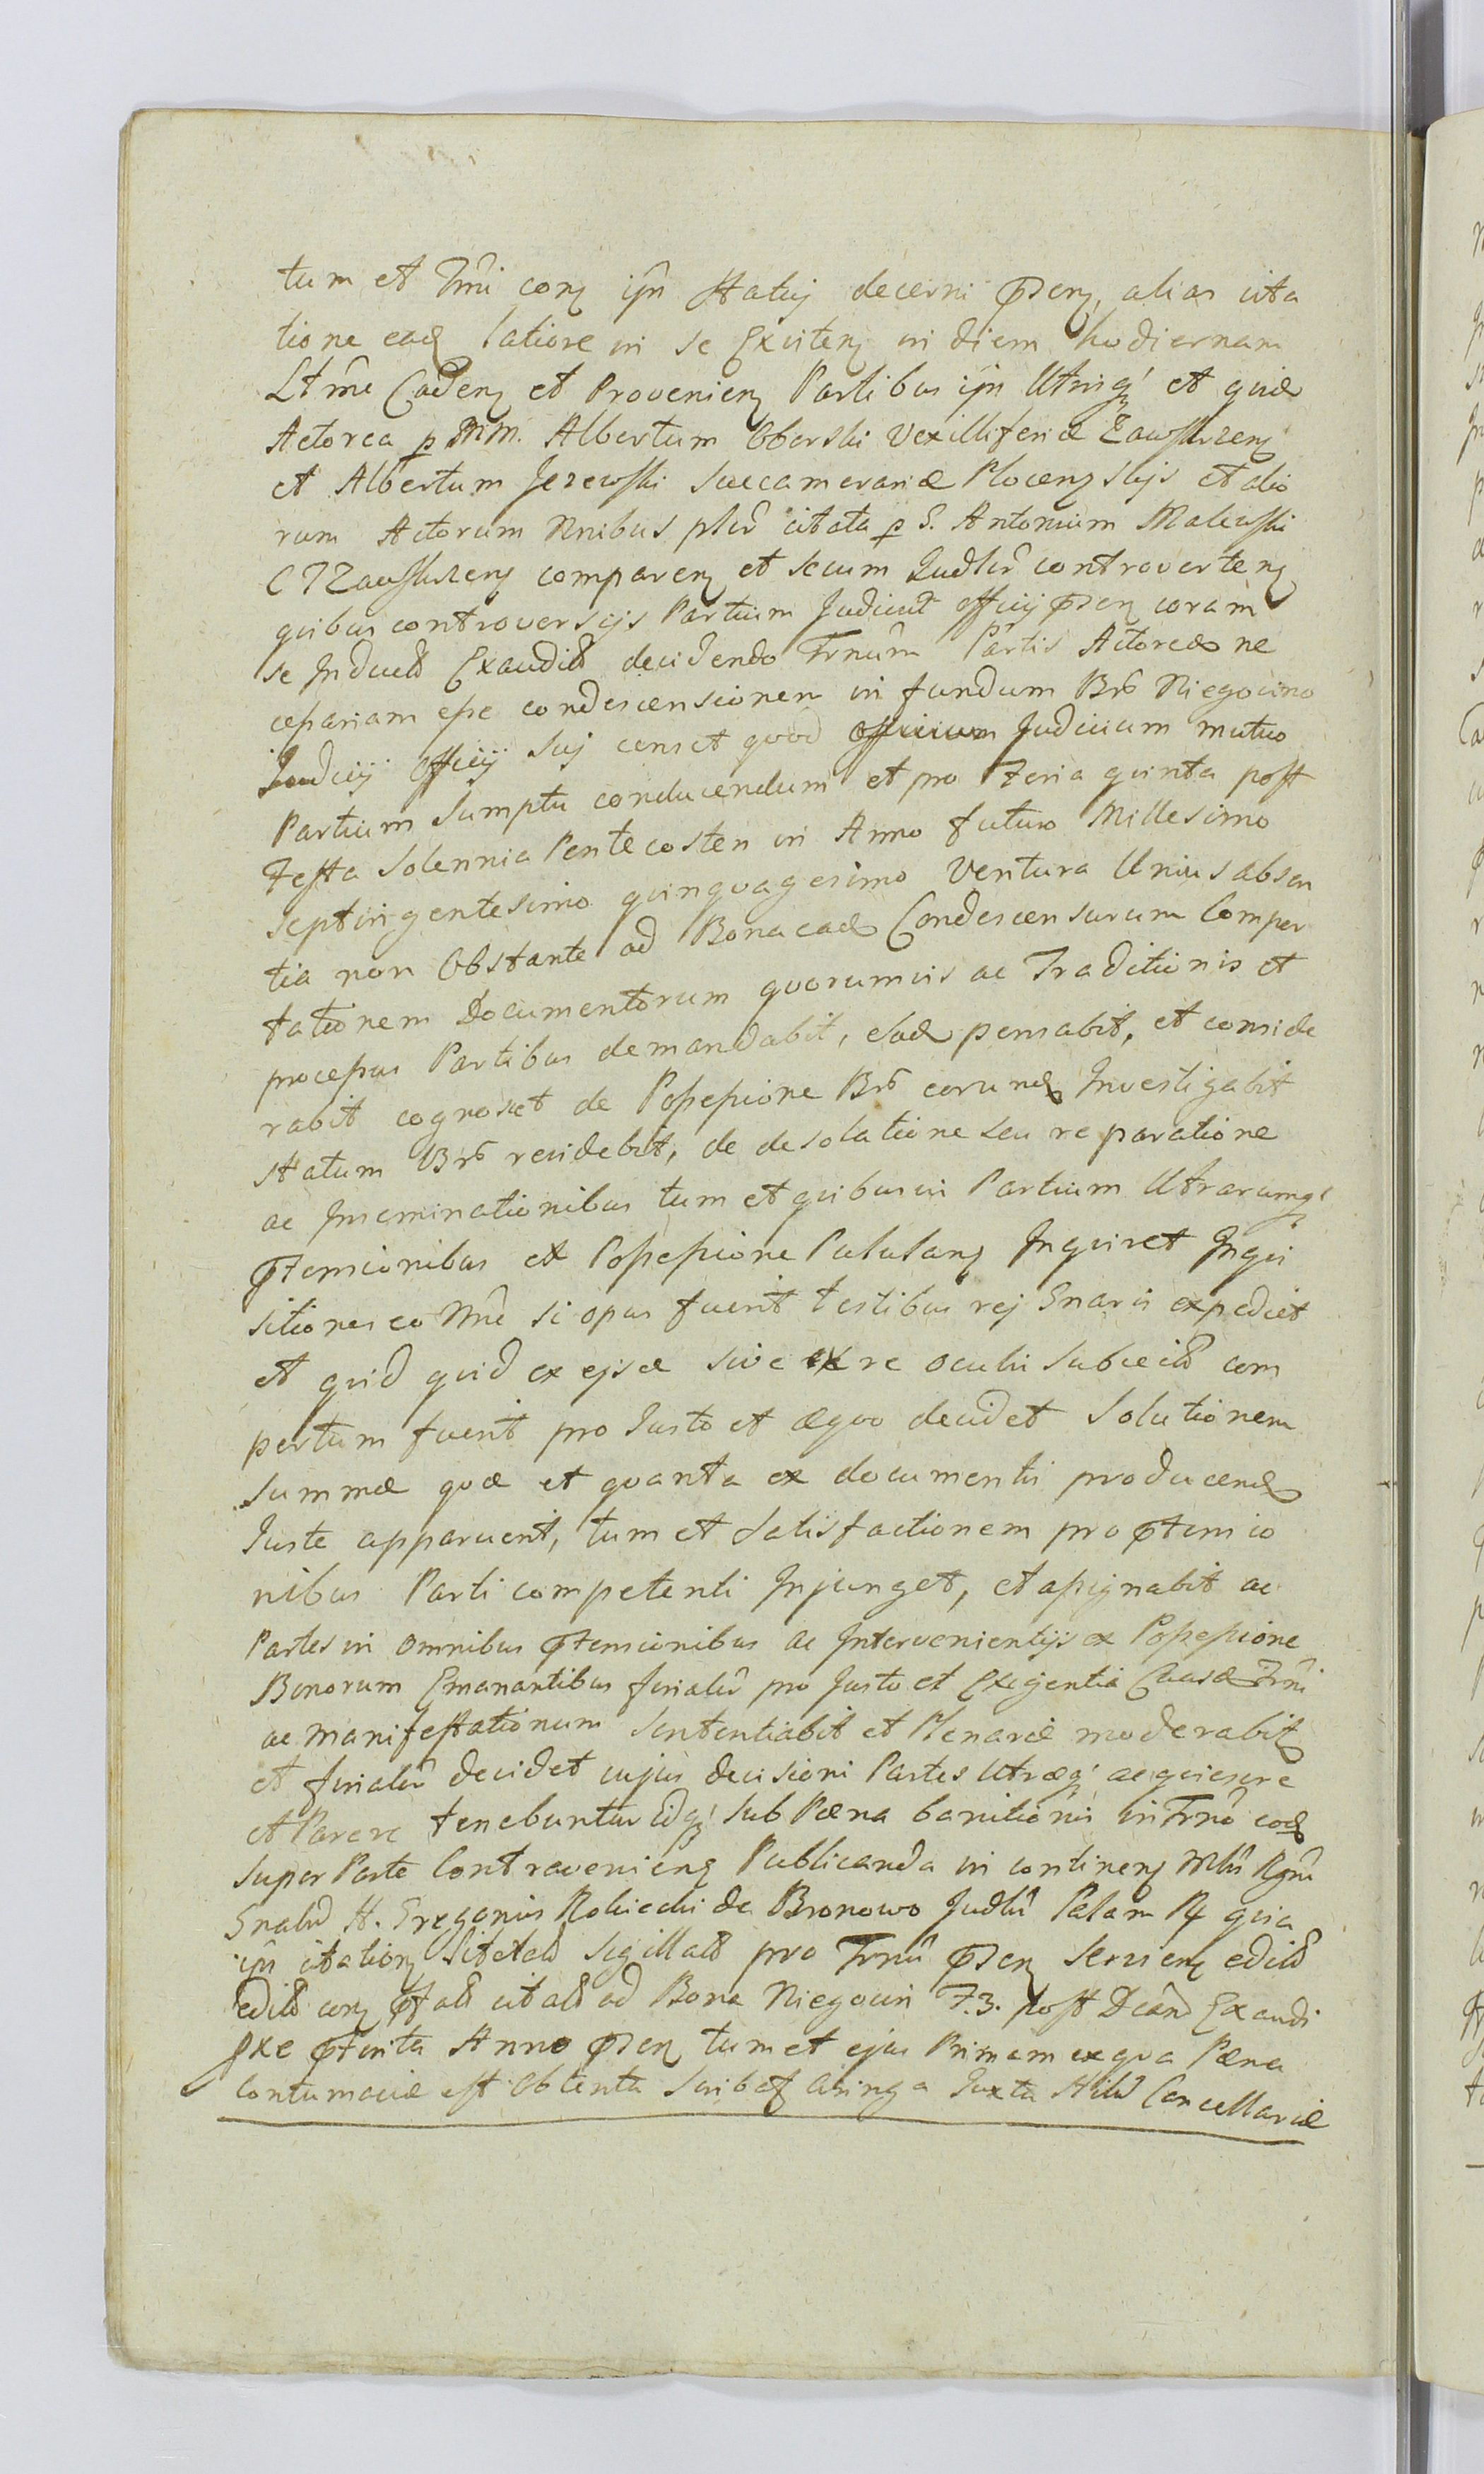 tum et Trni corꝫ ijñ Statuj decerni pñtenꝫ, alias cita
tione eadꝫ latiore in se Excitenꝫ in diem hodiernam
Ltme Cadenꝫ et Provenienꝫ Partibus ijñ Utrisqꝫ et quidē
Actorea p MM. Albertum Oborski Vexilliferidæ Zawskrzenꝫ
et Albertum Jezewski Succamerariæ Plocenꝫ slijs et alio
rum Actorum Nnibus plrũ citata p G. Antonium Malewski
C T Zawskrzenꝫ comparenꝫ et secum Judlr̃ controvertenꝫ
quibus controversijs Partium Judicium officij pñtenꝫ coram
se Inductis Exauditis decidendo Trnum Partis Actoreæ ne
cessariam esse condescensionem in fundum Brõ Niegocino
Judicij Officij Suj censet quod Officium Judicium mutuo
Partium Sumptu conducendum et pro Feria quinta post
Festa Solennia Pentecosten in Anno futuro Millesimo
septingentesimo quinquagesimo Ventura Unius absen
tia non Obstante ad Bona eadꝫ Condescensurum Compor
tationem Documentorum quorumvis ac Traditionis et
processus Partibus demandabit, eadꝫ pensabit, et conside
rabit cognoscet de Possessione Brõ eorundꝫ Investigabit
statum Brõ revidebit, de desolatione seu reparatione
ac Inseminationibus tum et quibusvis Partium Utrarumqꝫ
pñtensionibus ex Possessione Pululanꝫ Inquiret Inqui
sitiones eo Nne si opus fuerit testibus rej Gnaris expediet
et quid quid ex ejsdē sive ex re oculis subiectis com
pertum fuerit pro Iusto et æquo decidet Solutionem
Summæ quæ et quanta ex documentis producendꝫ
Iuste apparuerit, tum et Satisfactionem pro pñtensio
nibus Parti competenti Injunget, et assignabit ac
Partes in omnibus pñtensionibus ac Intervenientijs ex Possessione
Bonorum Emanantibus finaliter pro Justo et Exigentia Causæ Trni
ac manifestationum Sententiabit et Plenarie moderabit
et finaliter decidet cujus decisioni Partes Utræqꝫ acquiescere
et Parere tenebuntur Idqꝫ Sub Pæna banitionis in Trno eodꝫ
super Parte Contravenienꝫ Publicanda in continenꝫ Mlũ Rgni
Gnalem H. Gregorius Rokicki de Bronowo Judlũ Palam Rꝫ quia
ijñ citationꝫ Sitetelis Sigillatis pro Trno pñtenꝫ Servienꝫ editis
editis corꝫ pñtatis citatis ad Bona Niegocin F. 3. post Dcam Exaudi
pxe pñterita Anno pñtenꝫ tum et ejus Primam ex qua Pæna
Contumaciæ est Obtenta Scribet Juxta Stilũ Cancellariæ